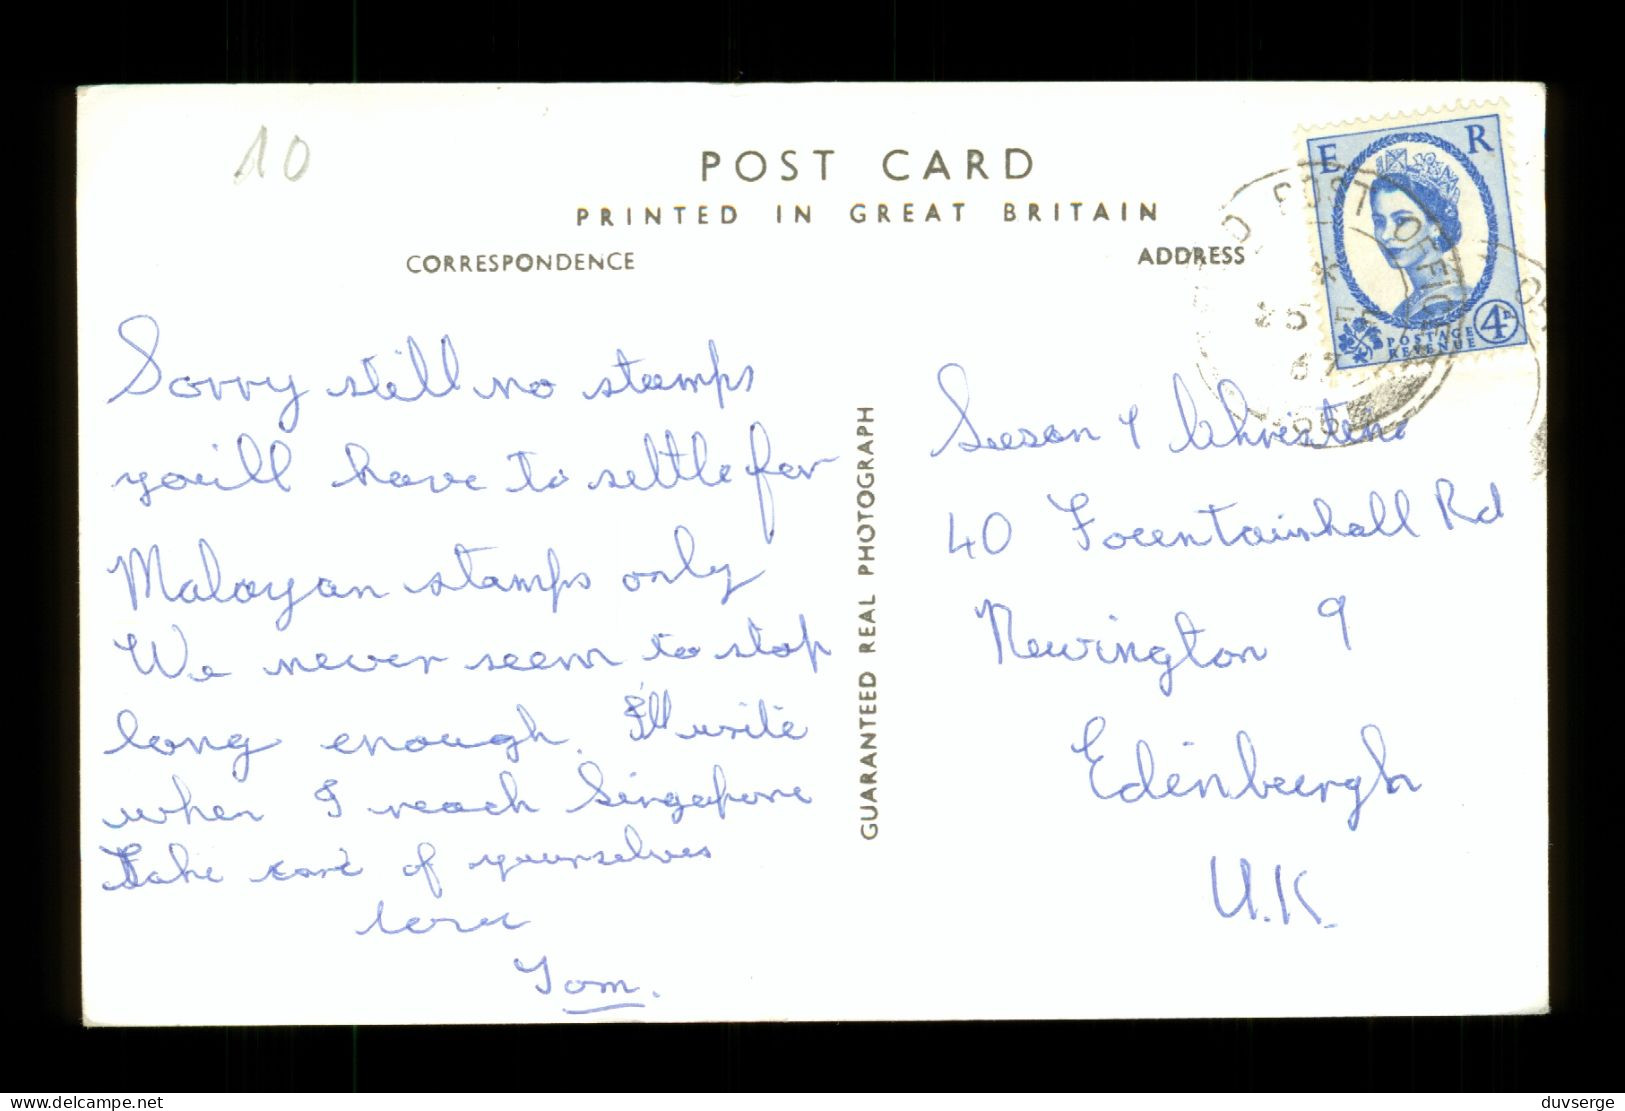 10
POST CARD
PRINTED IN GREAT BRITAIN
CORRESPONDENCE
ADDRESS
E R
POSTAGE
REVENUE
4D
POST OFFICE
Sorry still no stamps
you'll have to settle for
Malayan stamps only
We never seem to stop
long enough. I'll write
when I reach Singapore
Take care of yourselves
love
Tom.
GUARANTEED REAL PHOTOGRAPH
Susan & Christine
40 Fountainhall Rd
Newington 9
Edinburgh
U.K.
duvserge